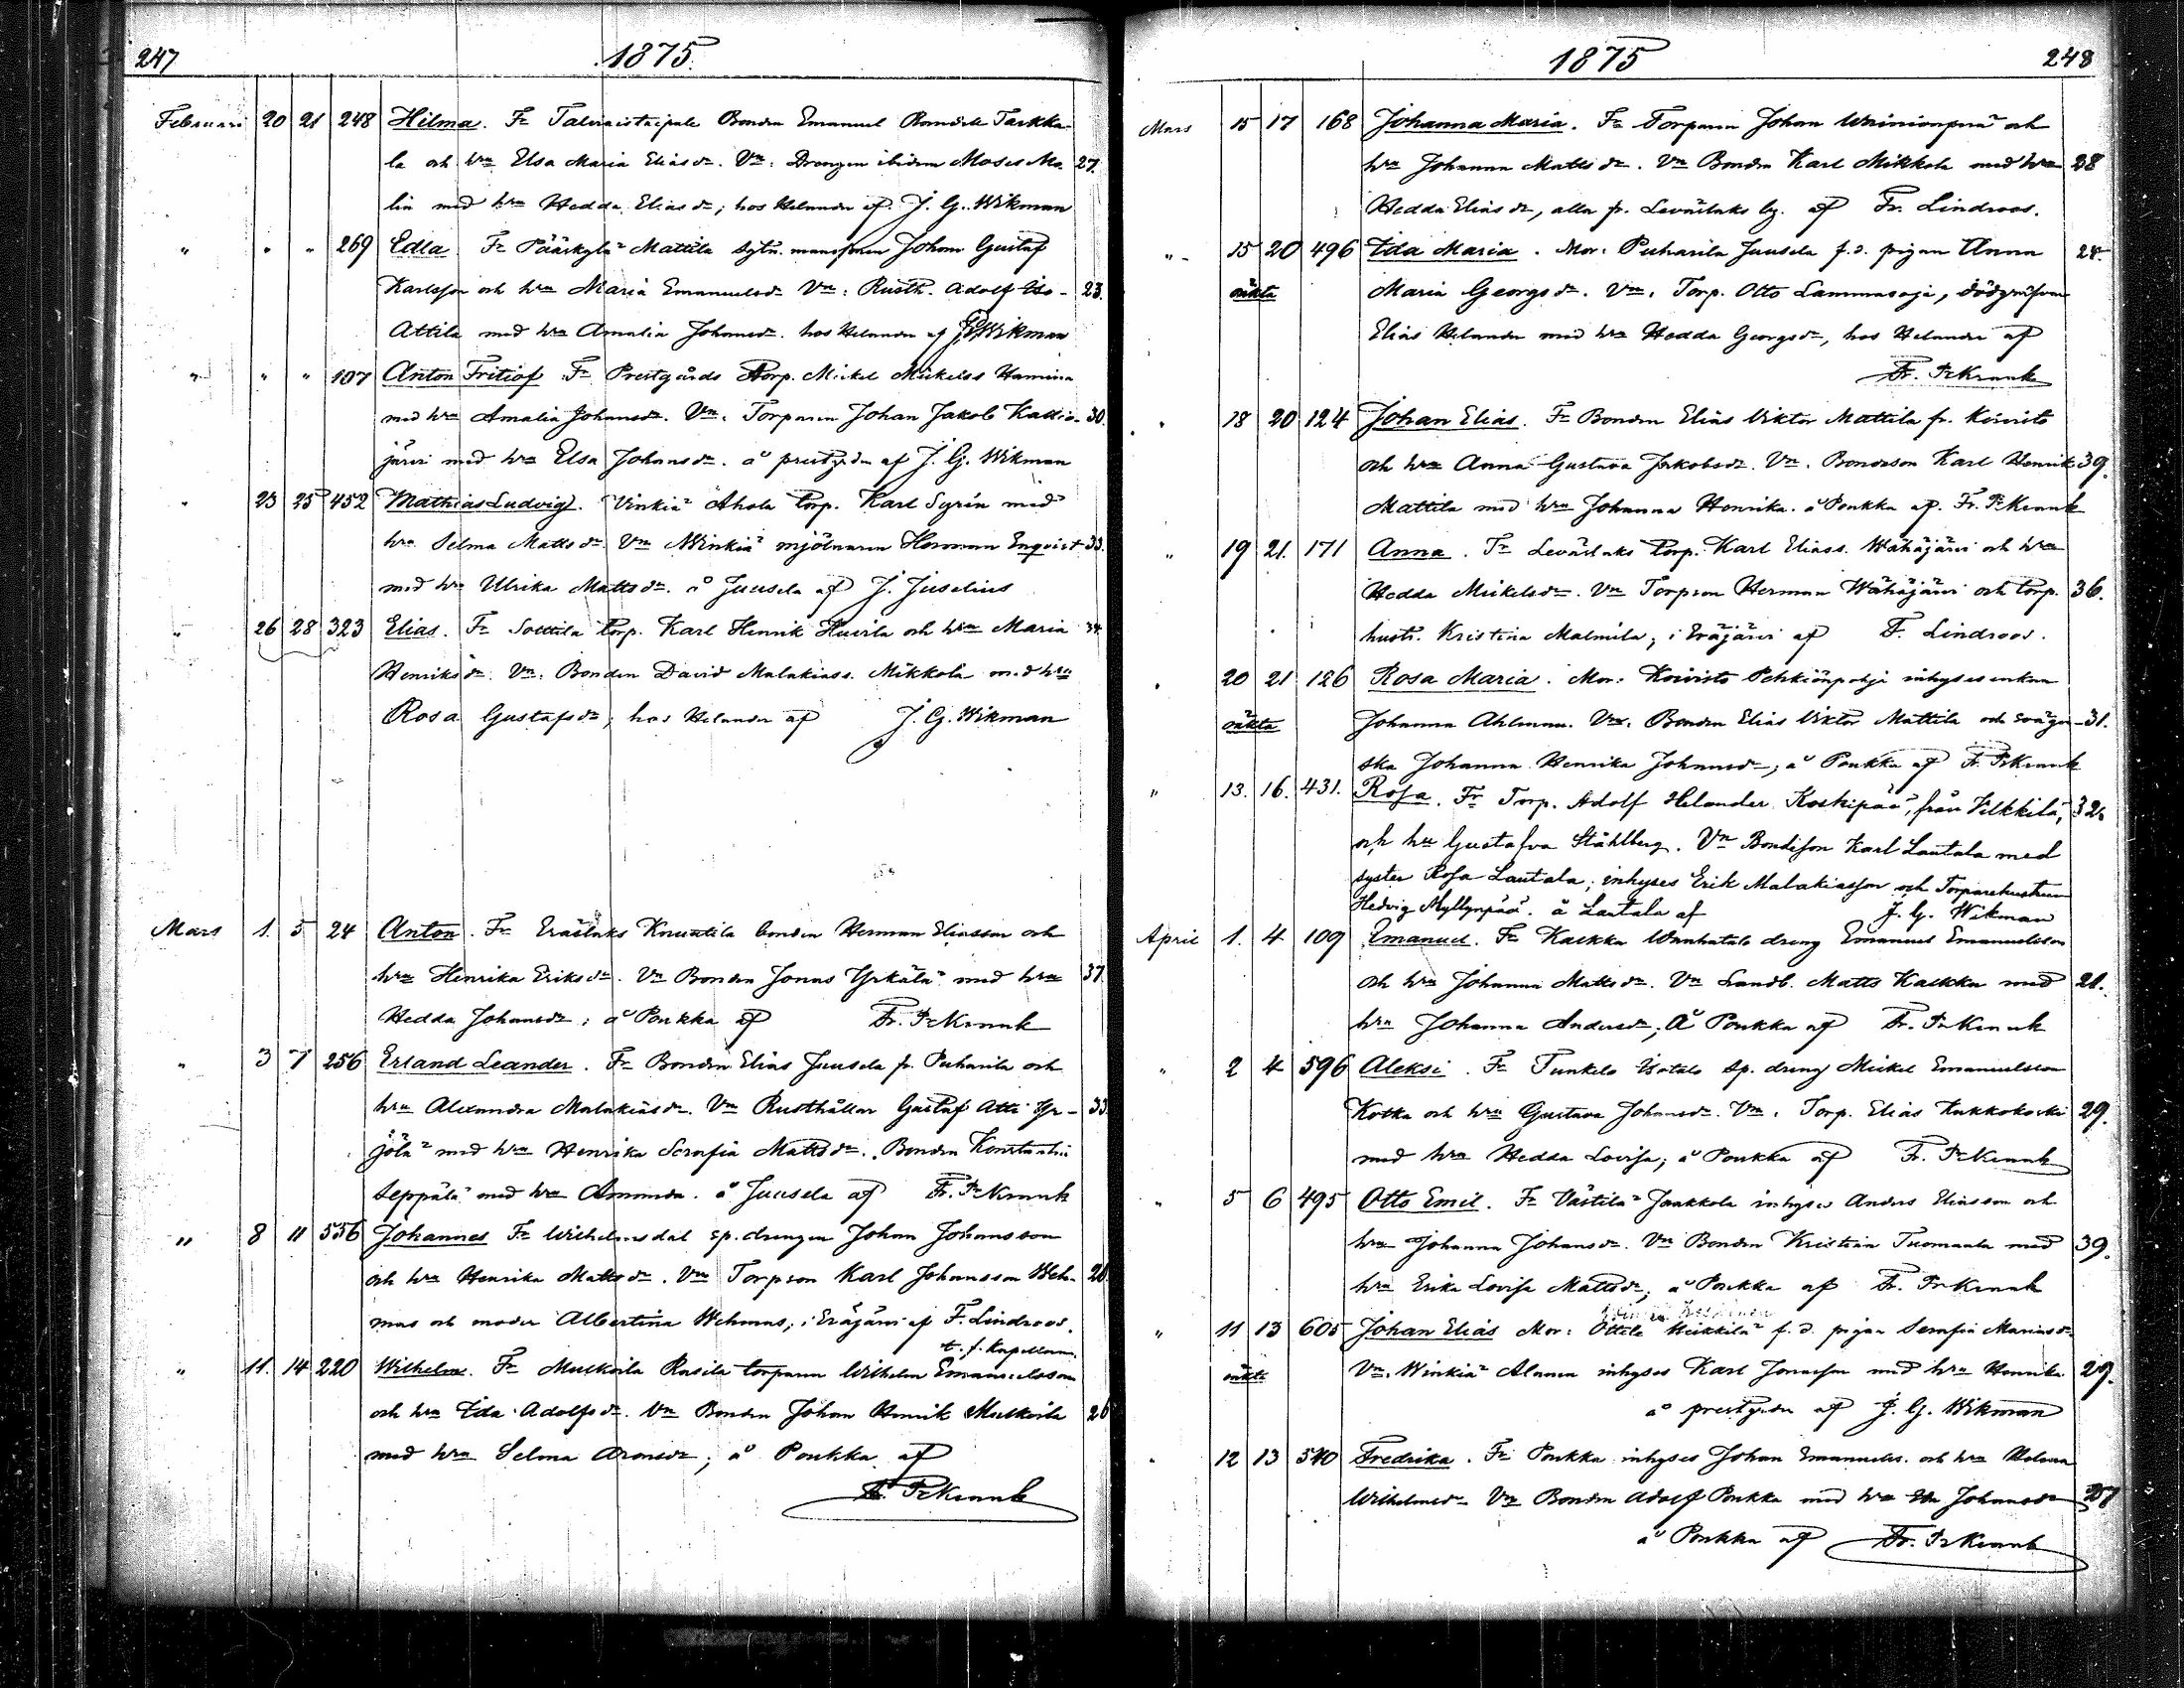 247
1875.
Februari 20 21 248 Hilma. Fr Talviaistaipale Bonden Emanuel Tarkka-
la och hru Elsa Maria Eliasdr. Vn: Drengen ibidem Moses Ma- 27.
lin med hru Hedda Eliasdr; hos Helander af J. G. Wikman
" " " 269 Edla Fr Pääskylä Mattila Johan Gustaf
Karlsson och hru Maria Emanuelsdr Vn: Rusth. Adolf Iso- 23.
Attila med hru Amalia Johansdr. hos Helander af J. G. Wikman
" " " 107 Anton Fritiof Fr Prestgårds Torp. Mickel Mickelss Hamina
med hru Amalia Johansdr. Vn: Torparen Johan Jakob Kallio- 30.
järvi med hru Elsa Johansdr. å prestgrdn af J. G. Wikman
" 23 25 452 Mathias Ludvig. Vinkiä Ahola torp. Karl Syrén med
hru Selma Mattsdr Vn Winkiä mjölnaren Herman Enqvist 33.
med hru Ulrika Mattsdr. å Juusela af J. Juselius
" 26 28 323 Elias. Fr Sottila torp. Karl Henrik Huvila och hru Maria 34
Henriksdr. Vn: Bonden David Malakiass. Mikkola med hru
Rosa Gustafsdr; hos Helander af J. G. Wikman
Mars 1. 5 24 Anton. Fr Eräslaks Knuutila bonden Herman Eliasson och
hru Henrika Eriksdr. Vn Bonden Jonas Yrkälä med hru 37
Hedda Johansdr; å Poukka af Fr. Fr Krank
" 3 7 256 Erland Leander. Fr Bonden Elias Juusela fr. Puharila och
hru Alexandra Malakiasdr. Vn Rusthållar Gustaf Atti Yr- 33.
jölä med hru Henrika Serafia Mattsdr. Bonden Konstantin
Seppälä med hru Amanda. å Juusela af Fr. Fr Krank
" 8 11 556 Johannes Fr Wilhelmsdal sp. drengen Johan Johansson
och hru Henrika Mattsdr. Vn Torpson Karl Johansson Weh- 28
mas och moder Albertina Wehmas; i Eräjärvi af F. Lindroos.
t. f. Kapellan.
" 11. 14 220 Wilhelm. Fr Mulkoila Rasila torparen Wilhelm Emanuelsson
och hru Ida Adolfsdr. Vn Bonden Johan Henrik Mulkoila 26
med hru Selma Aronsdr; å Poukka af
Fr. Fr Krank
1875
248
Mars 15 17 168 Johanna Maria. Fr Torparen Johan Wainionpää och
hru Johanna Mattsdr. Vn Bonden Karl Mikkola med hru 28
Hedda Eliasdr, alla fr. Leväslaks by. af Fr. Lindroos.
" 15 20 496 Ida Maria. Mor: Puharila Juusela f.d. pigan Anna 24.
oäkta Maria Georgsdr. Vn: Torp. Otto Lammasoja, dödgräfvar
Elias Helander med hru Hedda Georgsdr, hos Helander af
Fr. Fr Krank
" 18 20 124 Johan Elias. Fr Bonden Elias Viktor Mattila fr. Koivisto
och hru Anna Gustava Jakobsdr. Vn. Bondeson Karl Henrik 39.
Mattila med hru Johanna Henrika. å Poukka af. Fr. Fr Krank
" 19 21. 171 Anna. Fr Leväslaks torp. Karl Eliass. Wähäjärvi och hru
Hedda Mickelsdr. Vn Torpson Herman Wähäjärvi och torp. 36.
hustr. Kristina Malmila; i Eräjärvi af F. Lindroos.
" 20 21 126 Rosa Maria. Mor: Koivisto Pehkiönpohja inhysesenkan
oäkta Johanna Ahlman. Vn: Bonden Elias Viktor Mattila och sväger- 31.
ska Johanna Henrika Johansdr; å Poukka af Fr. Fr Krank
" 13. 16. 431. Rosa. Fr Torp. Adolf Helander Koskipää, från Vilkkilä, 32.
och hu Gustafva Ståhlberg. Vn Bondeson Karl Lautala med
syster Rosa Lautala; inhyses Erik Malakiasson och Torparehustrun
Hedvig Myllynpää. å Lautala af J. G. Wikman
April 1. 4 109 Emanuel. Fr Kaekka Wanhatalo dreng Emanuel Emanuelsson
och hru Johanna Mattsdr. Vn Landb. Matts Kaekka med 21.
hru Johanna Andersdr; å Poukka af Fr. Fr Krank
" 2 4 596 Aleksi. Fr Tunkelo Isotalo sp. dreng Mickel Emanuelsson
Kotka och hru Gustava Johansdr. Vn: Torp. Elias Kukkokoski 29.
med hru Hedda Lovisa; å Poukka af Fr. Fr Krank
" 5 6 495 Otto Emil. Fr Västilä Jaakkola inhyses Anders Eliasson och
hru Johanna Johansdr. Vn Bonden Kristian Tuomaala med 39.
hru Erika Lovisa Mattsdr; å Poukka af Fr. Fr Krank
" 11 13 605 Johan Elias Mor: Ottela Heikkilä f.d. pigan Serafia Mariasdr
oäkta Vn. Winkiä Alanen inhyses Karl Jonasson med hru Henrika 29.
å prestgrdn af J. G. Wikman
" 12 13 540 Fredrika. Fr Poukka inhyses Johan Emanuels. och hru Helena
Wilhelmsdr Vn Bonden Adolf Poukka med hru Johansdr 27
å Poukka af Fr. Fr Krank